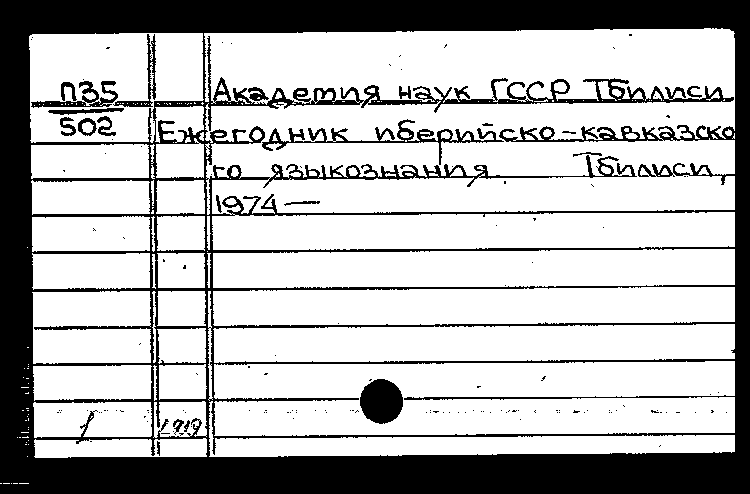 П35 Академия наук ГССР Тбилиси
502 Ежегодник иберийско-кавказско
го языкознания. Тбилиси,
1974—
1 1919